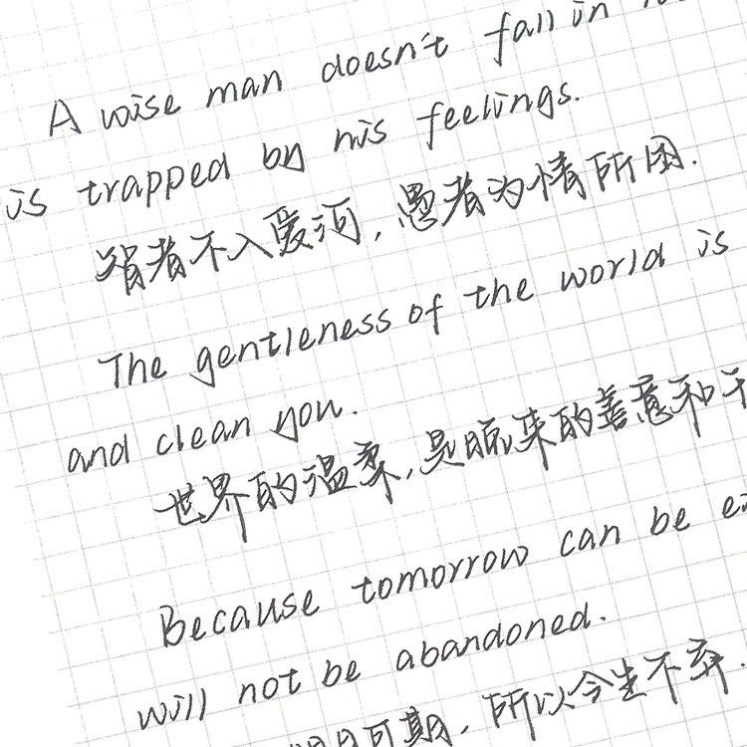 A wise man doesn't fall in
is trapped by his feelings.
智者不入爱河,愚者为情所困.
The gentleness of the world is
and clean you.
世界的温柔,是晾来的善意和干
Because tomorrow can be
will not be abandoned.
明月可期,所以今生不弃.